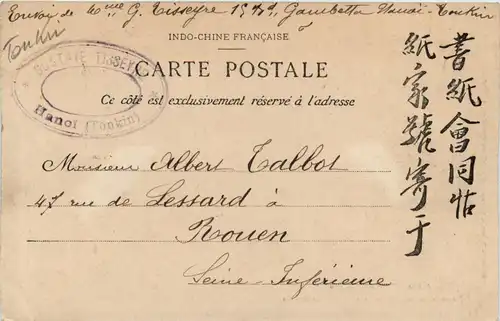 Envoi de Mme G. Tisseyre Bd Gambetta Hanoï-Tonkin
Tonkin
INDO-CHINE FRANÇAISE
CARTE POSTALE
Ce côté est exclusivement réservé à l'adresse
GUSTAVE TISSEYRE
Hanoï (Tonkin)
Monsieur Albert Talbot
47 rue de Lessard à
Rouen
Seine-Inférieure
書紙會同
紙家號寄于